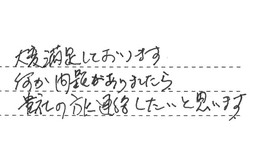 大変満足しております
何か問題がありましたら
貴社の方に連絡したいと思います